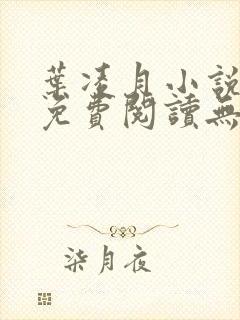 葉凌月小說
免費閱讀無
柒月夜